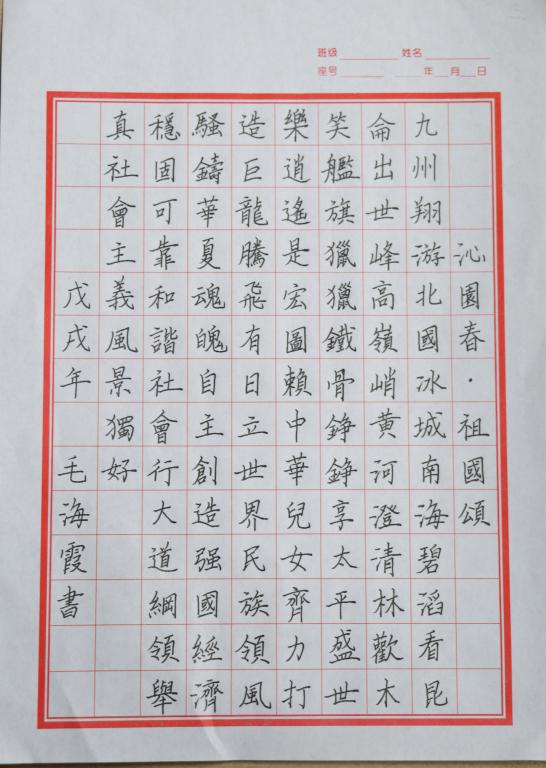 班级 姓名
座号 年 月 日
沁園春·祖國頌
九州翔游北國冰城南海碧滔看昆
侖出世峰高嶺峭黄河澄清林歡木
笑艦旗獵獵鐵骨錚錚享太平盛世
樂逍遙是宏圖賴中華兒女齊力打
造巨龍騰飛有日立世界民族領風
騷鑄華夏魂魄自主創造强國經濟
穩固可靠和諧社會行大道綱領舉
真社會主義風景獨好
戊戌年 毛海霞書